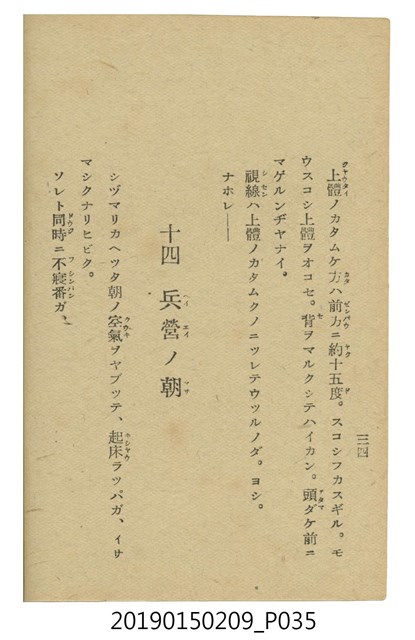 三四
上體ノカタムケ方ハ前方ニ約十五度。スコシフカスギル。モ
ウスコシ上體ヲオコセ。背ヲマルクシテハイカン。頭ダケ前ニ
マゲルンヂヤナイ。
視線ハ上體ノカタムクノニツレテウツルノダ。ヨシ。
ナホレ――
十四 兵營ノ朝
シヅマリカヘツタ朝ノ空氣ヲヤブツテ、起床ラツパガ、イサ
マシクナリヒビク。
ソレト同時ニ不寢番ガ、
20190150209_P035